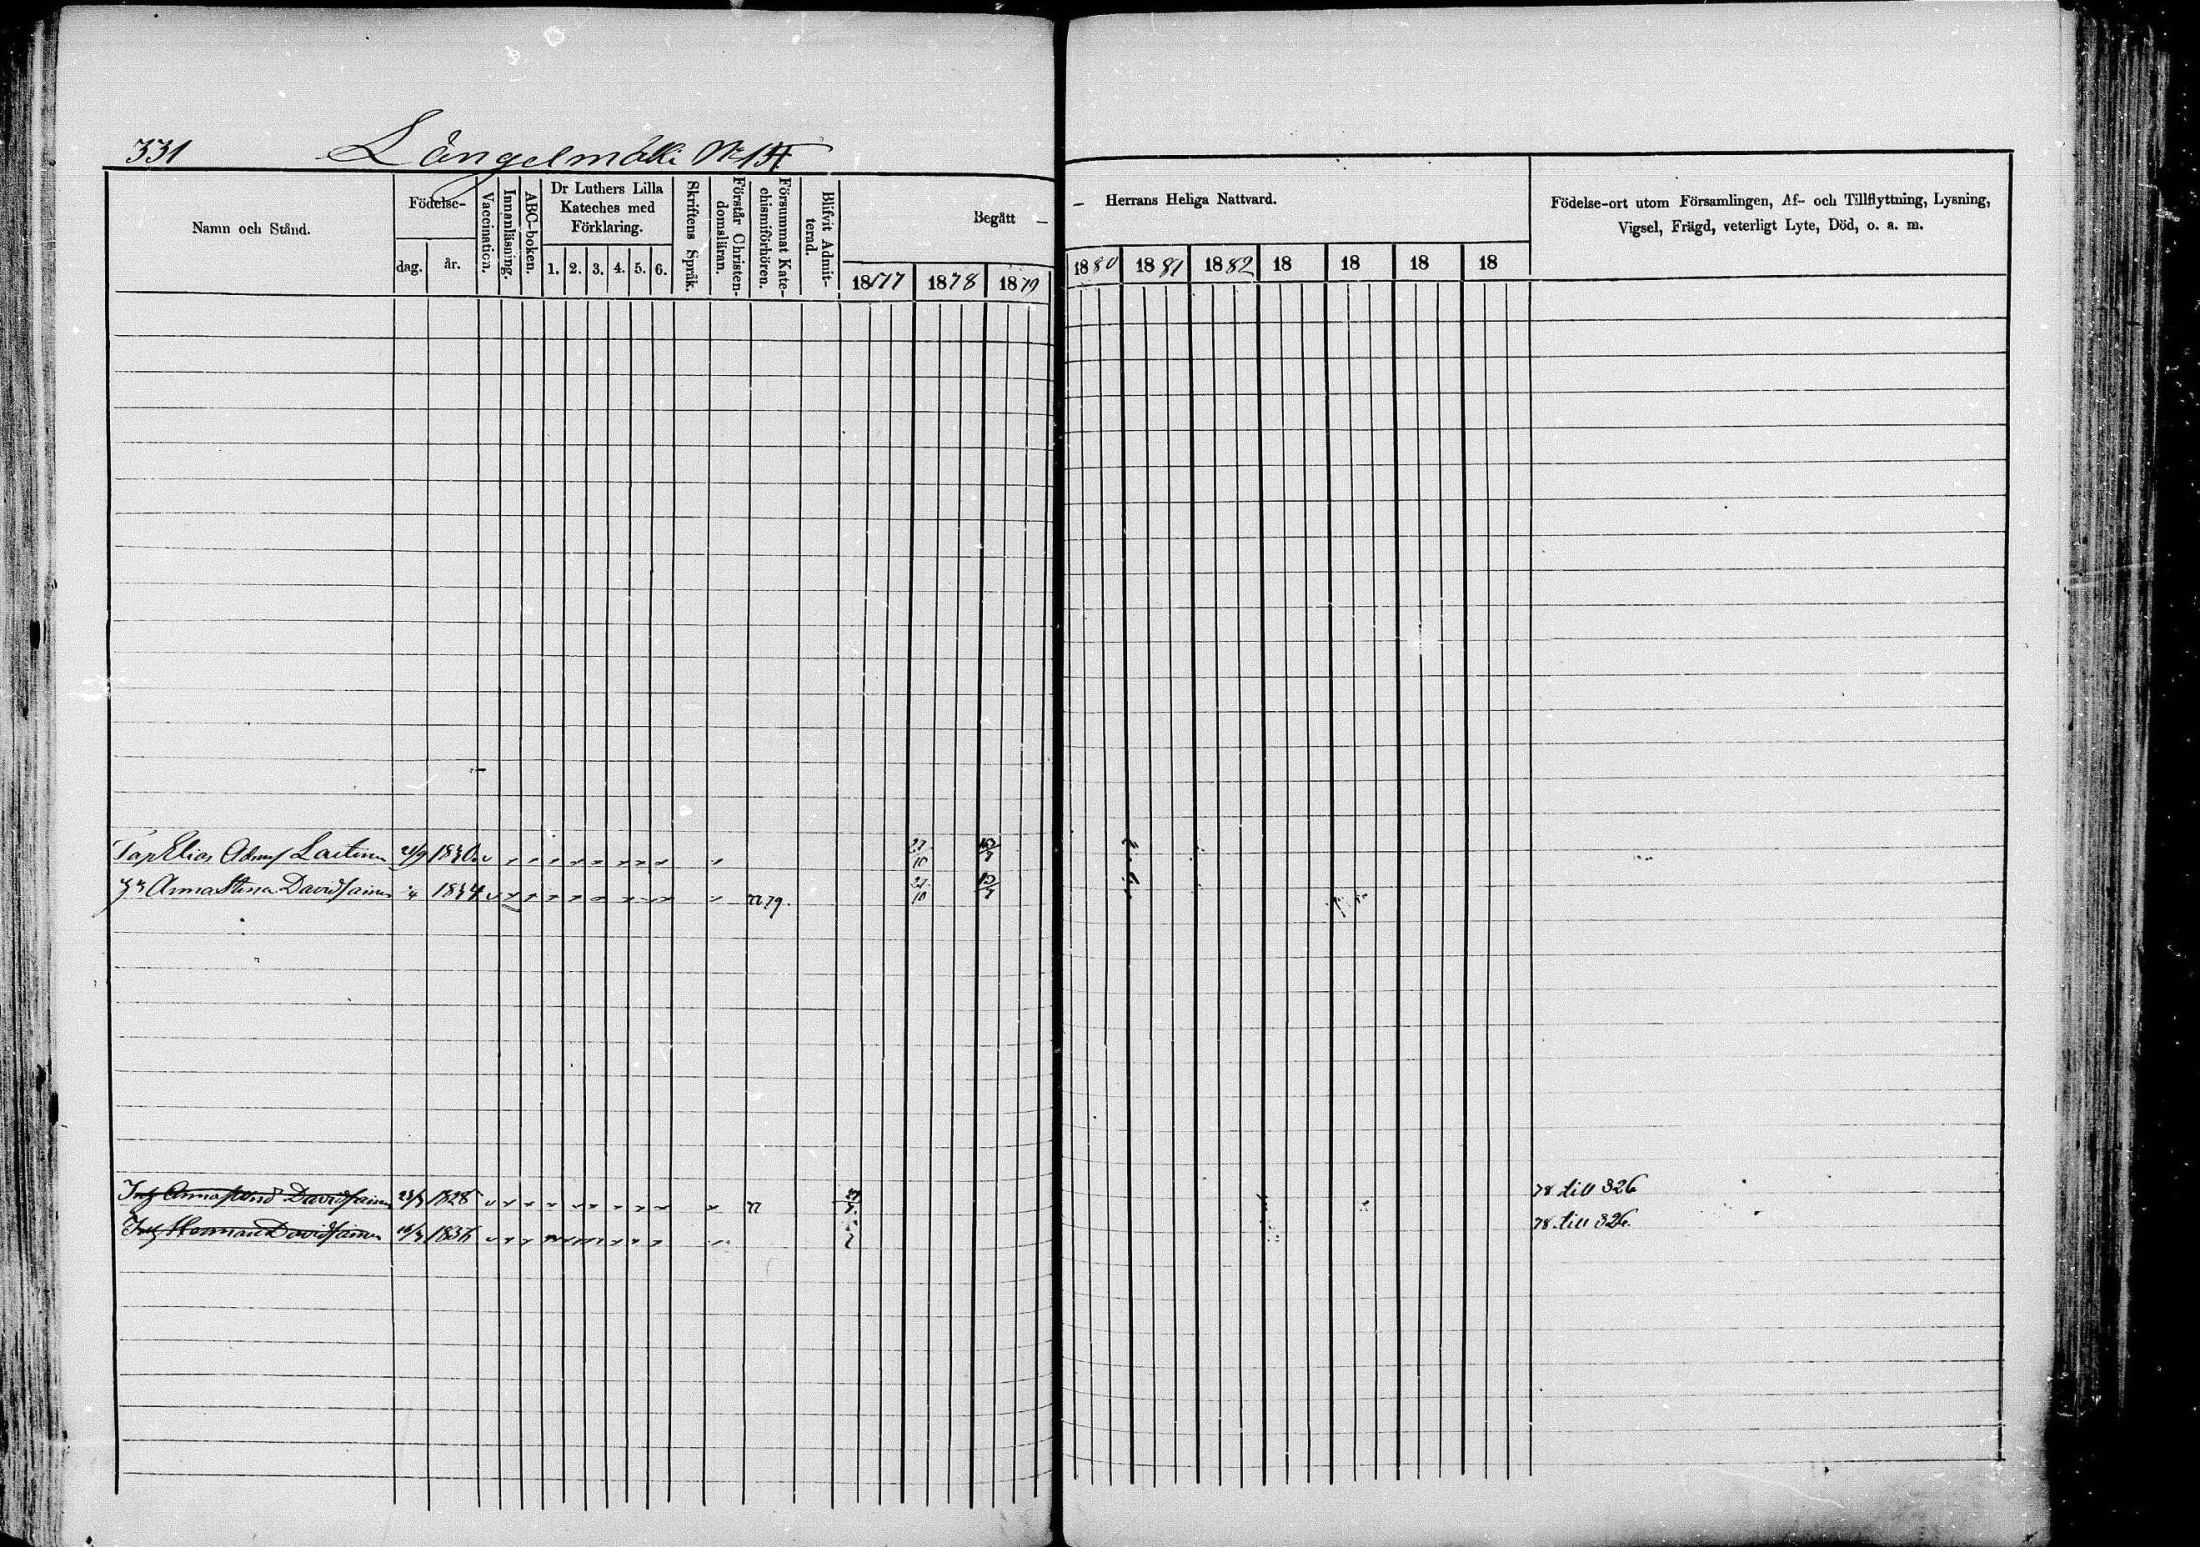 331 Längelmäki No 14
Namn och Stånd.
Födelse-
dag.
år.
Vaccination.
Innanläsning.
ABC-boken.
Dr Luthers Lilla
Kateches med
Förklaring.
1. 2. 3. 4. 5. 6.
Skriftens Språk.
Förstår Christen-
domsläran.
Försummat Kate-
chismiförhören.
Blifvit Admit-
terad.
Begått —
1877 1878 1879
— Herrans Heliga Nattvard.
1880 1881 1882 18 18 18 18
Födelse-ort utom Församlingen, Af- och Tillflyttning, Lysning,
Vigsel, Frägd, veterligt Lyte, Död, o. a. m.
Elias Laitinen 1830 27/10
Anna Stina Davidsainen 1834 79. 27/10
Anna Davidsainen 23/5 1828 78 till 326
Herman Davidsainen 1836 78 till 326.